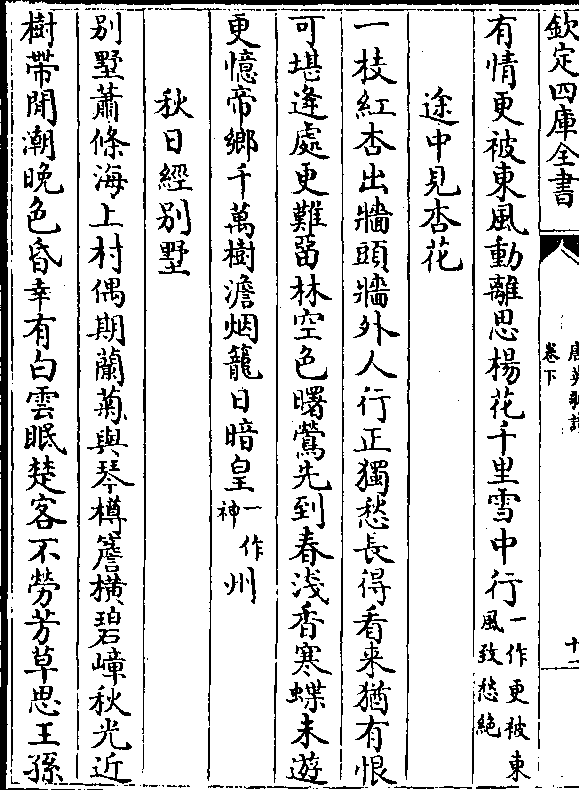 欽定四庫全書
卷下
有情更被東風動離思楊花千里雪中行一作更被東風致愁絶
途中見杏花
一枝紅杏出牆頭牆外人行正獨愁長得看来猶有恨
可堪逢處更難留林空色曙鶯先到春淺香寒蝶未遊
更憶帝鄉千萬樹澹烟籠日暗皇一作神州
秋日經别墅
别墅蕭條海上村偶期蘭菊與琴樽簷橫碧嶂秋光近
樹帶閒潮晚色昏幸有白雲眠楚客不勞芳草思王孫